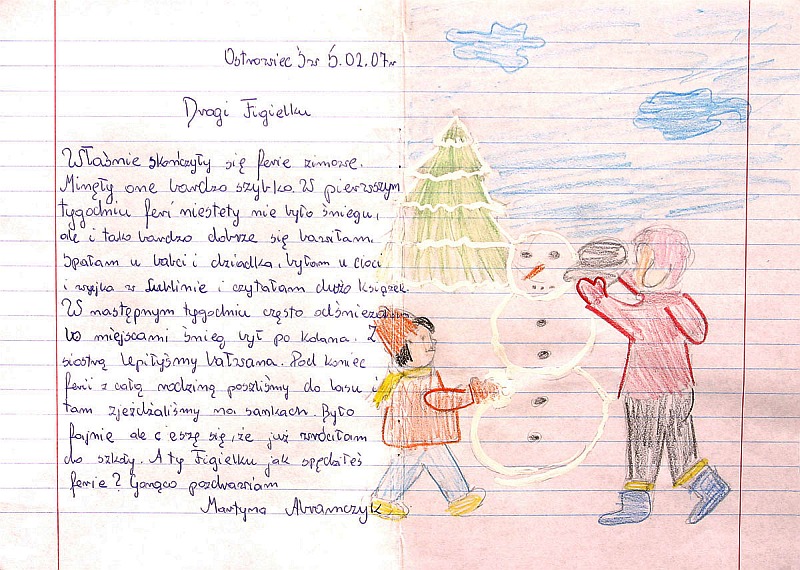 Ostrowiec Św 5.02.07r
Drogi Figielku
Właśnie skończyły się ferie zimowe.
Minęły one bardzo szybko. W pierwszym
tygodniu ferii niestety nie było śniegu,
ale i tako bardzo dobrze się bawiłam.
Spałam u babci i dziadka, byłam u cioci
i wujka w Lublinie i czytałam dużo książek.
W następnym tygodniu często odśnieżałam
bo miejscami śnieg był po kolana. Z
siostrą lepiłyśmy bałwana. Pod koniec
ferii z całą rodziną poszliśmy do lasu i
tam zjeżdżaliśmy na sankach. Było
fajnie ale cieszę się, że już wróciłam
do szkoły. A ty Figielku jak spędziłeś
ferie? Gorąco pozdrawiam
Martyna Abramczyk